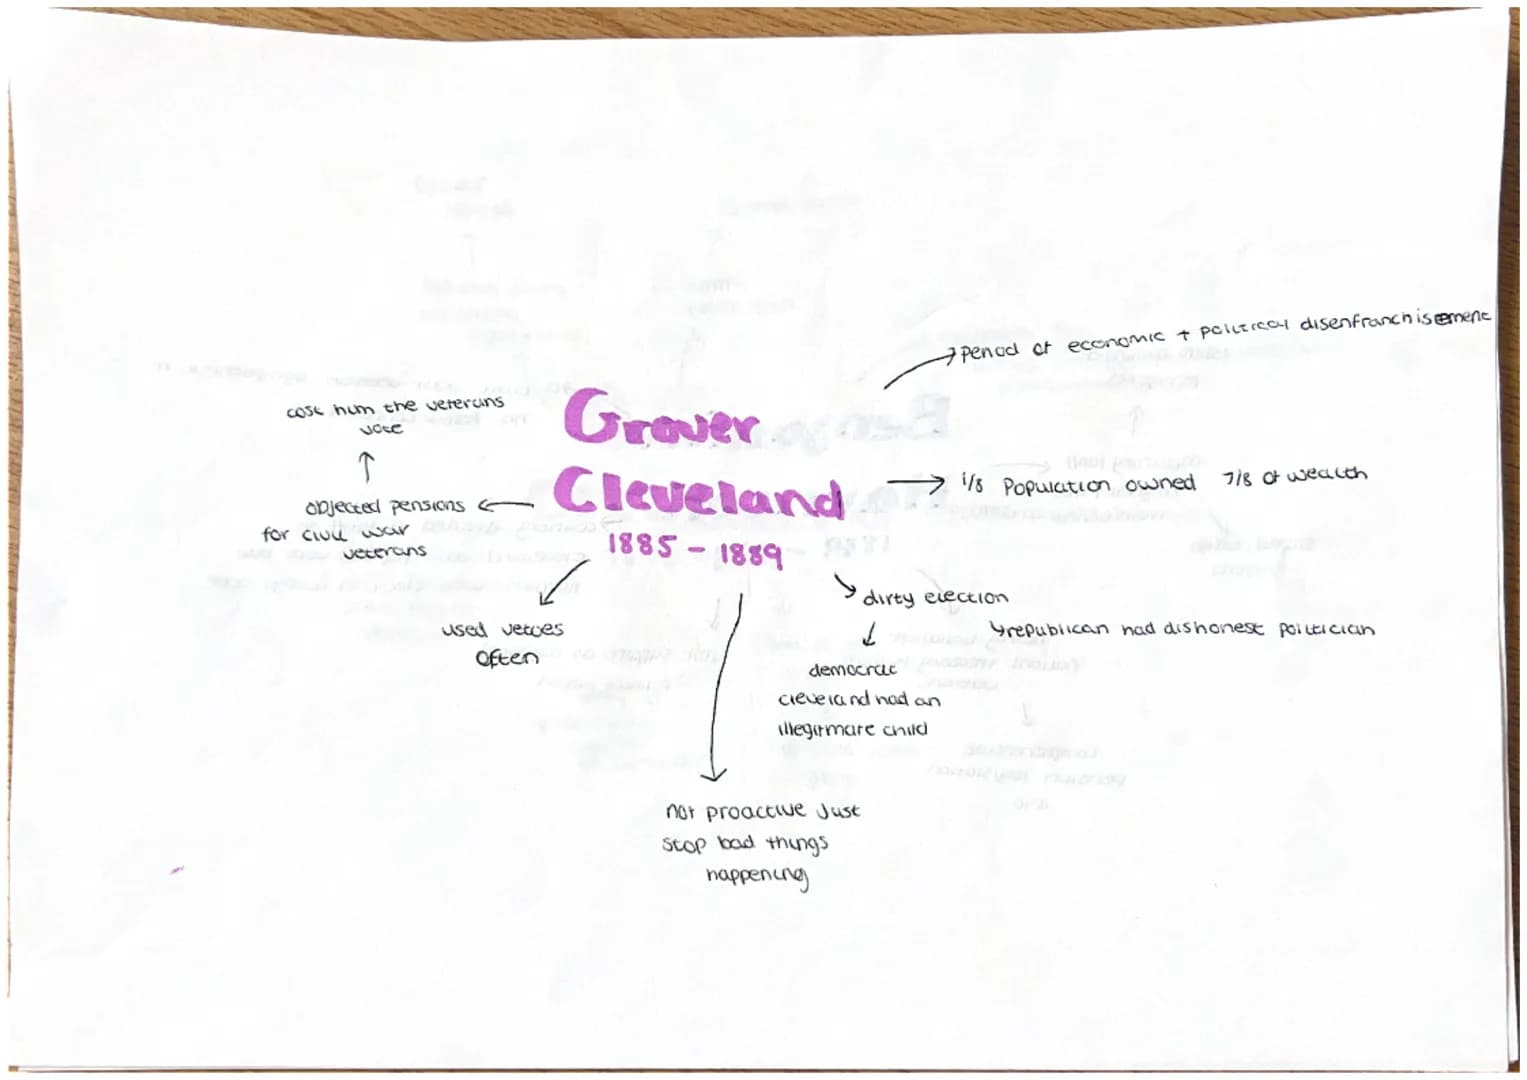 Grover
Cleveland
1885 - 1889
→ period of economic + political disenfranchisement
→ 1/8 Population owned 7/8 of wealth
dirty election
↳ republican had dishonest politician
↓
democrat
cleveland had an
illegitmate child
not proactive Just
stop bad things
happening
used vetoes
Often
objected pensions
for civil war
veterans
↑
cost him the veterans
vote